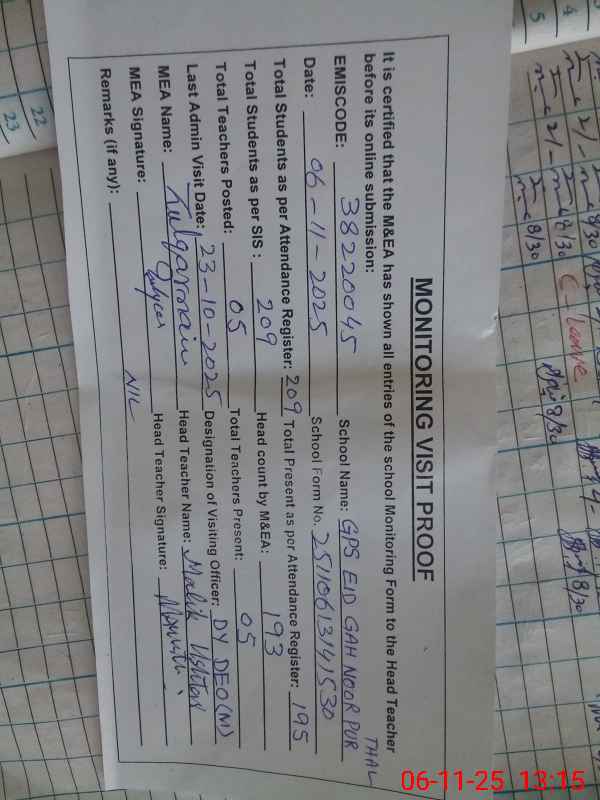 MONITORING VISIT PROOF
It is certified that the M&EA has shown all entries of the school Monitoring Form to the Head Teacher
before its online submission:
EMISCODE: 38220045 School Name: GPS EID GAH NOOR PUR THAL
Date: 06-11-2025 School Form No. 25110613141530
Total Students as per Attendance Register: 209 Total Present as per Attendance Register: 195
Total Students as per SIS : 209 Head count by M&EA: 193
Total Teachers Posted: 05 Total Teachers Present: 05
Last Admin Visit Date: 23-10-2025 Designation of Visiting Officer: DY DEO(M)
MEA Name: Zulqarnain Head Teacher Name: Malik
MEA Signature: Head Teacher Signature:
Remarks (if any): NIL
4
5
22
23
8/30
8/30
8/30
06-11-25 13:15